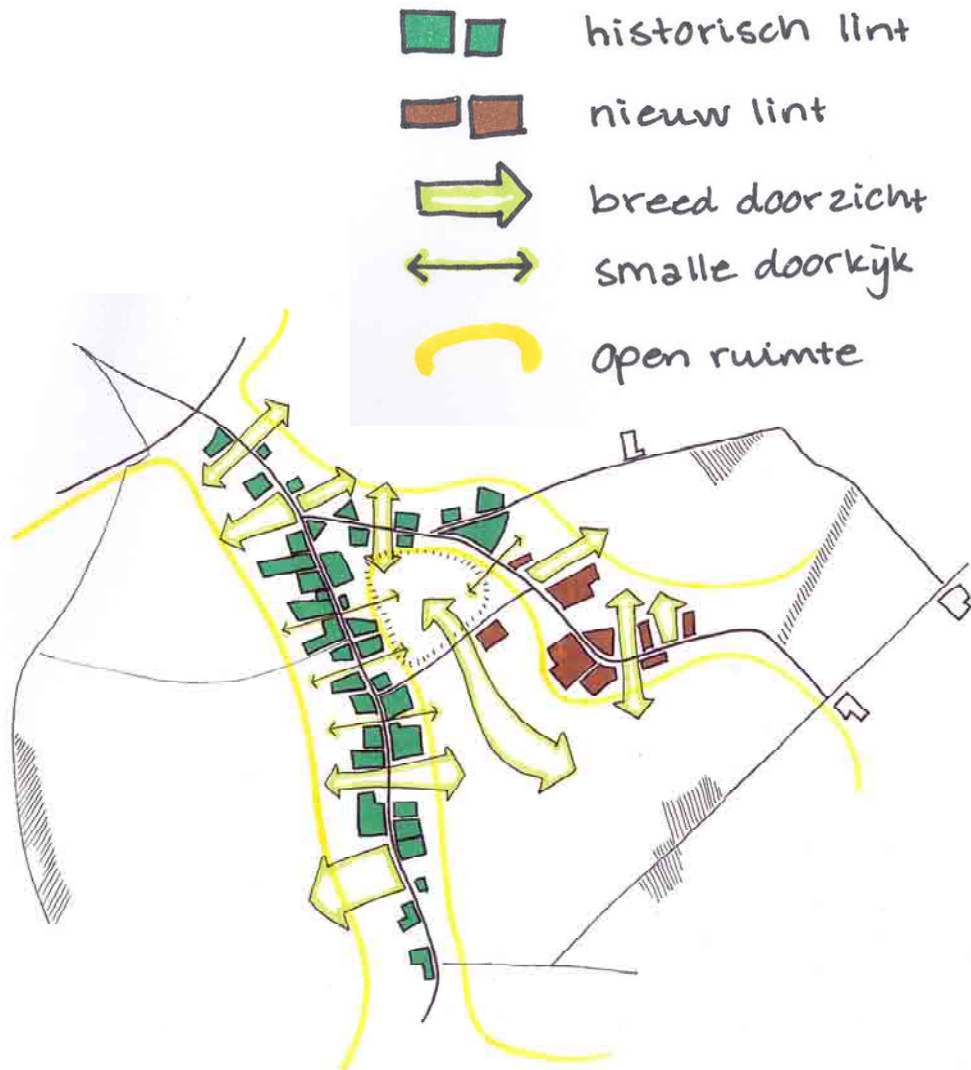 historisch lint
nieuw lint
breed doorzicht
smalle doorkijk
open ruimte